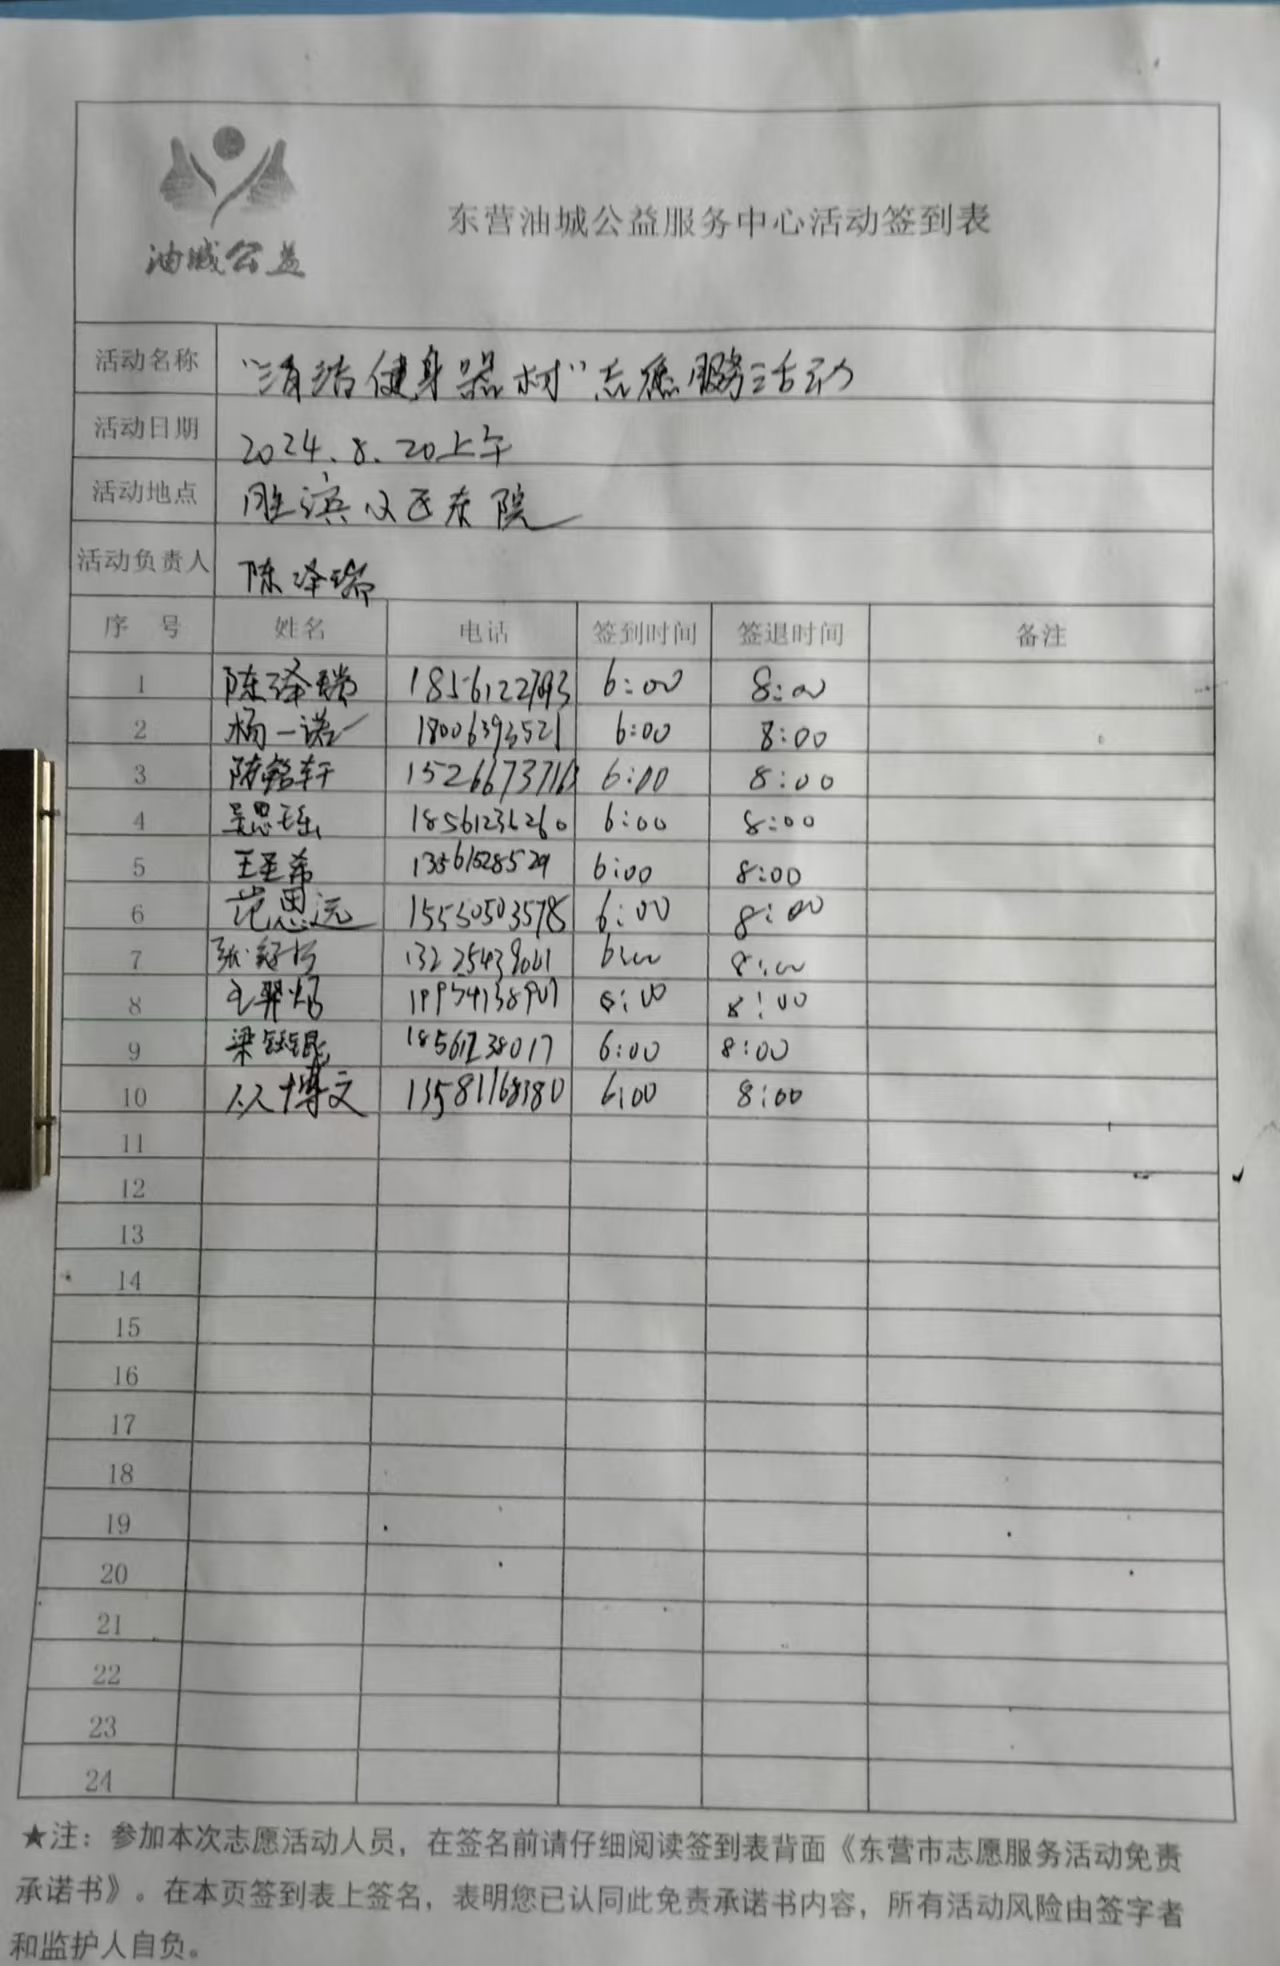 油城公益
东营油城公益服务中心活动签到表
活动名称 "清洁健身器材"志愿服务活动
活动日期 2024.8.20上午
活动地点 胜滨小区东院
活动负责人 陈泽瑞
序 号 姓名 电话 签到时间 签退时间 备注
1 陈泽瑞 6:00 8:00
2 杨一诺 18006393521 6:00 8:00
3 陈铭轩 6:00 8:00
4 吴思瑶 18561236260 6:00 8:00
5 王圣希 13561528529 6:00 8:00
6 范思远 15550503578 6:00 8:00
7 6:00 8:00
8 6:00 8:00
9 梁钰锟 18561238017 6:00 8:00
10 从博文 13581168380 6:00 8:00
11
12
13
14
15
16
17
18
19
20
21
22
23
24
★注：参加本次志愿活动人员，在签名前请仔细阅读签到表背面《东营市志愿服务活动免责
承诺书》。在本页签到表上签名，表明您已认同此免责承诺书内容，所有活动风险由签字者
和监护人自负。